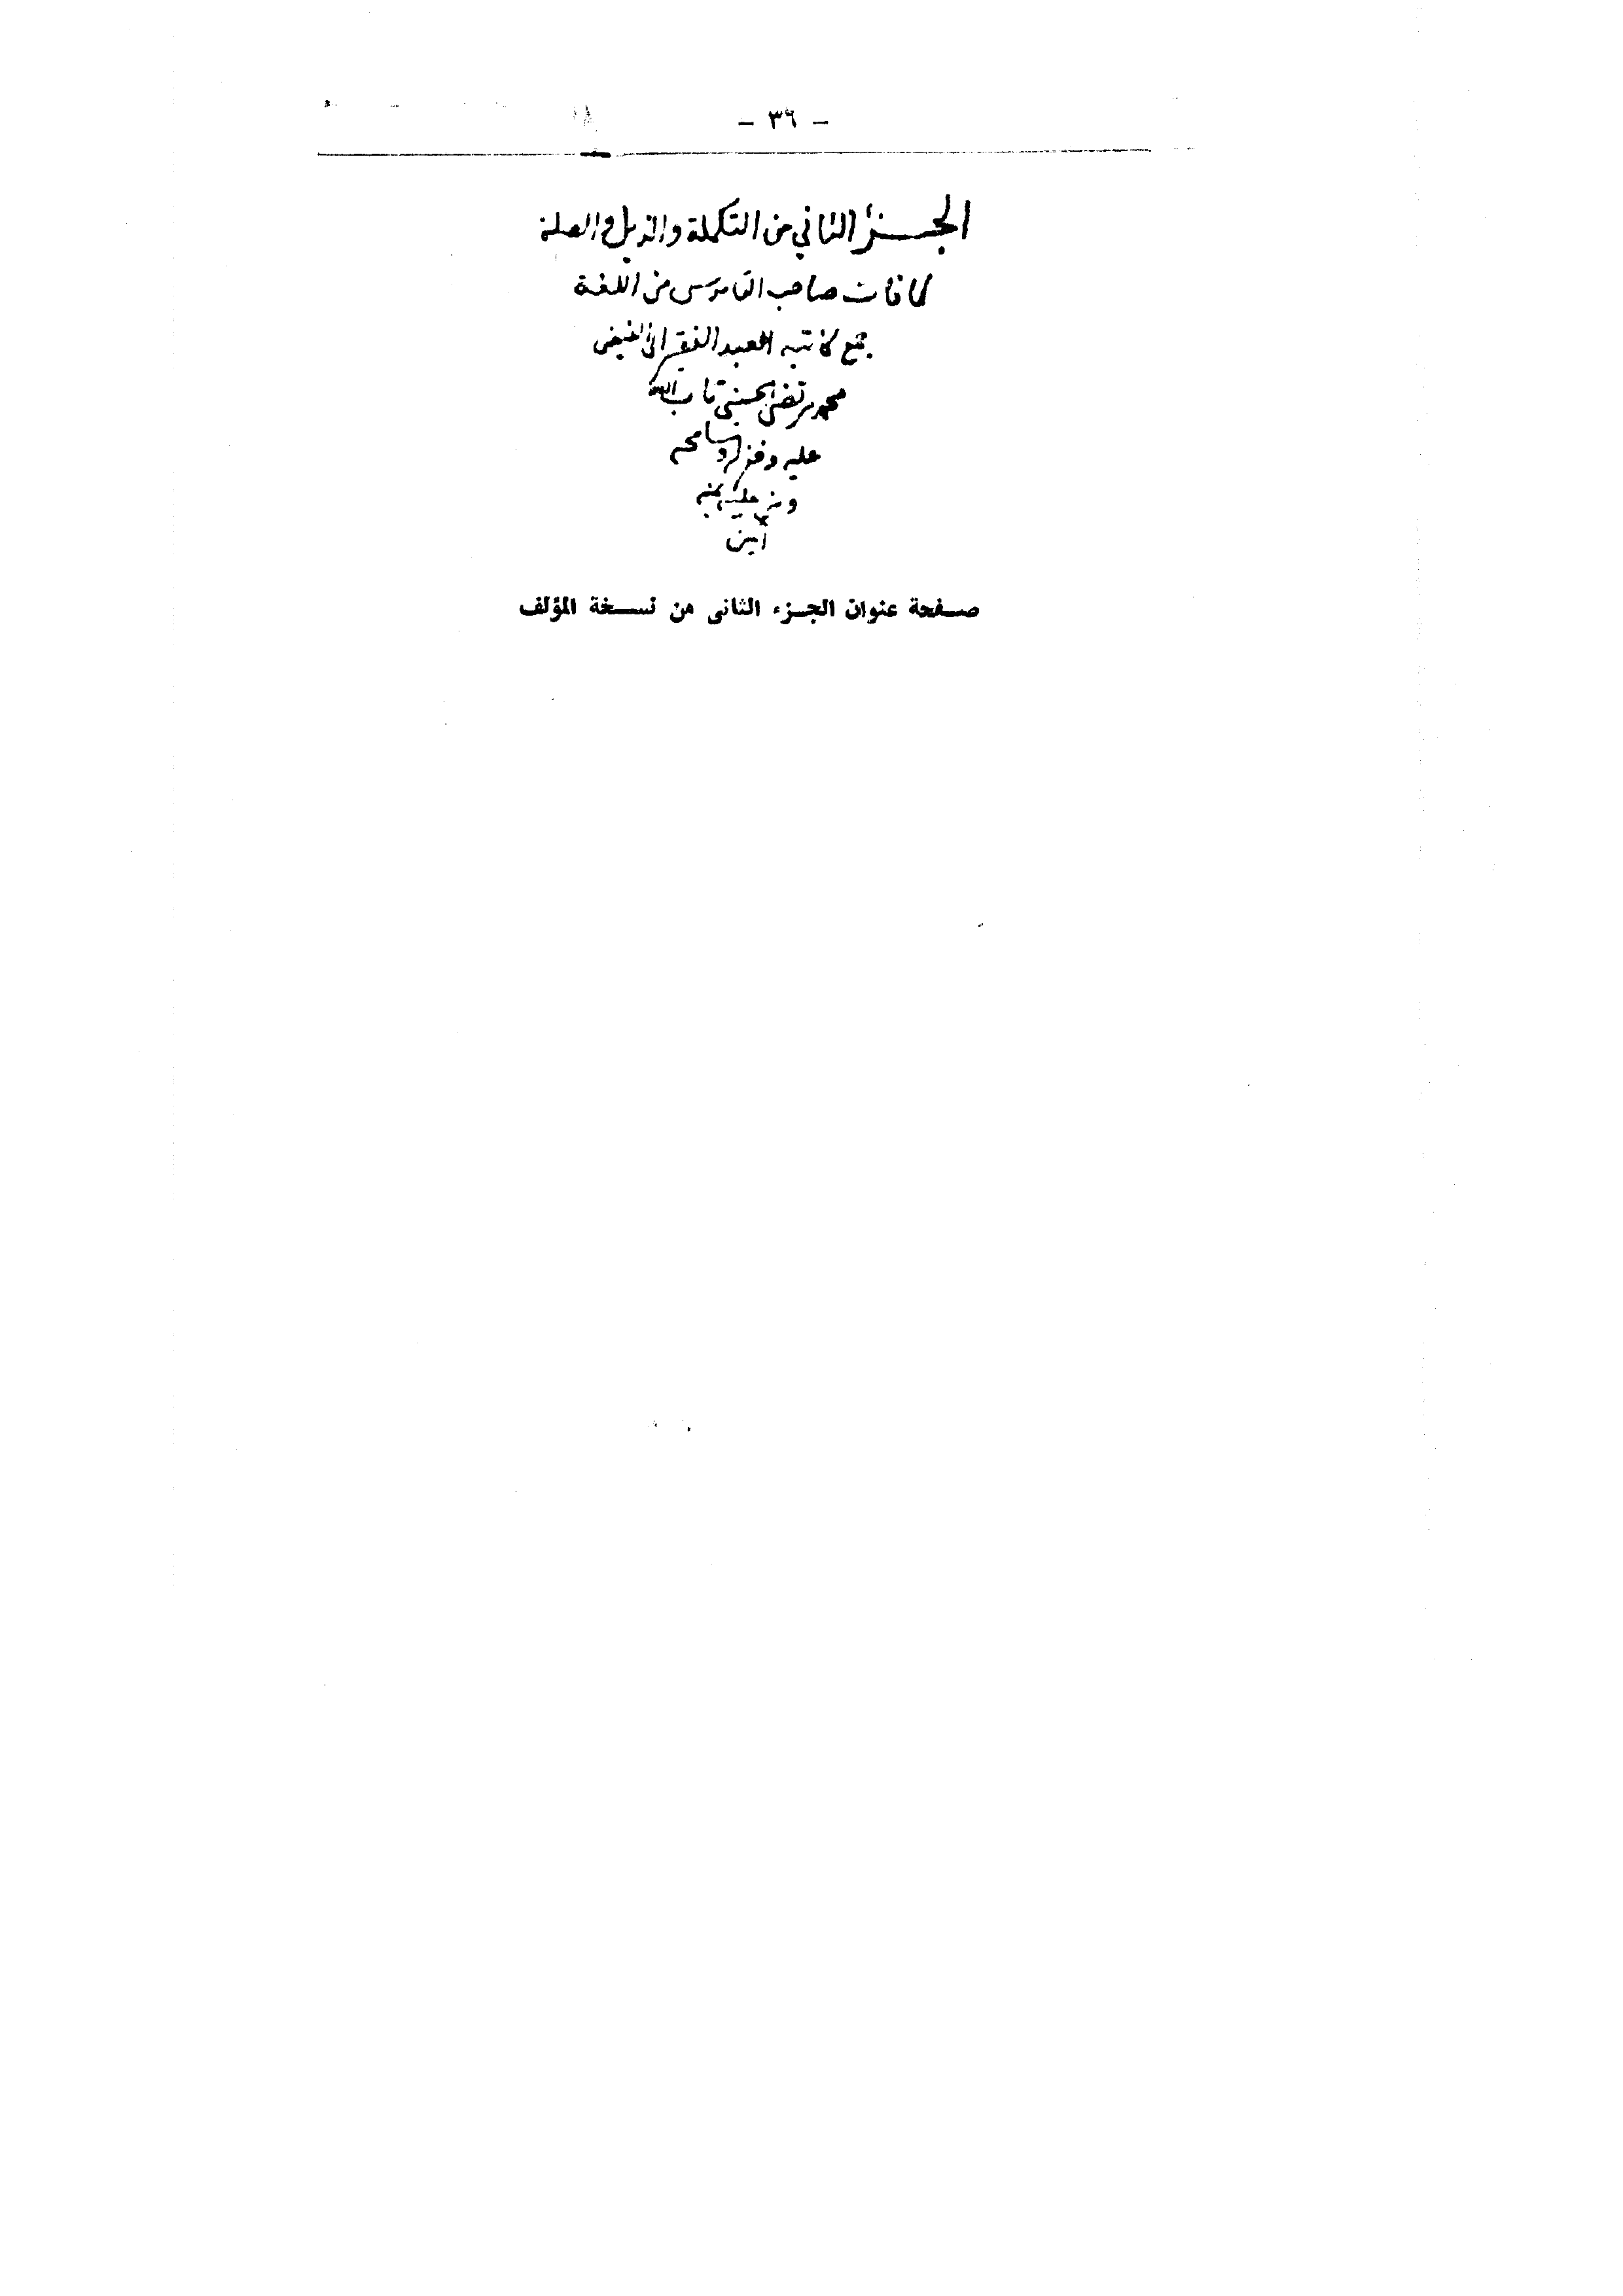 - ٣٦ -
الجزء الثاني من التكملة والذيل والصلة
لما فات صاحب القاموس من اللغة
جمع كاتبه العبد الفقير الفيضي
محمد مرتضى الحسيني تاب الله
عليه وغفر له وسامحه
عليه بمنه
آمين
صفحة عنوان الجزء الثاني من نسخة المؤلف